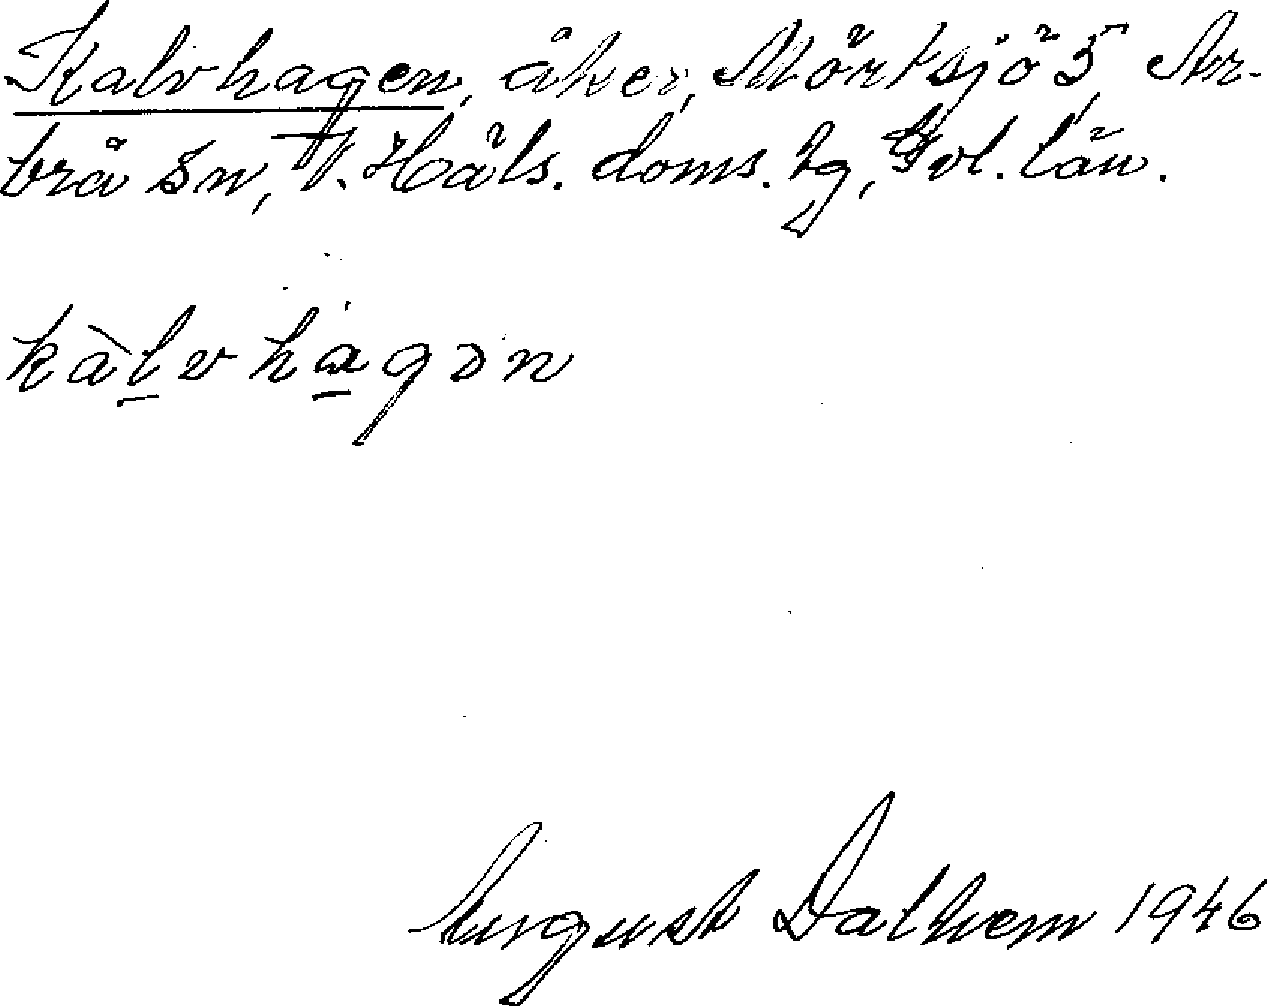 Kalvhagen, åker, Mörtsjö 5, Ar-
brå sn, V. Häls. doms. tg, Gvl. län.
kàlvhagən
August Dalhem 1946